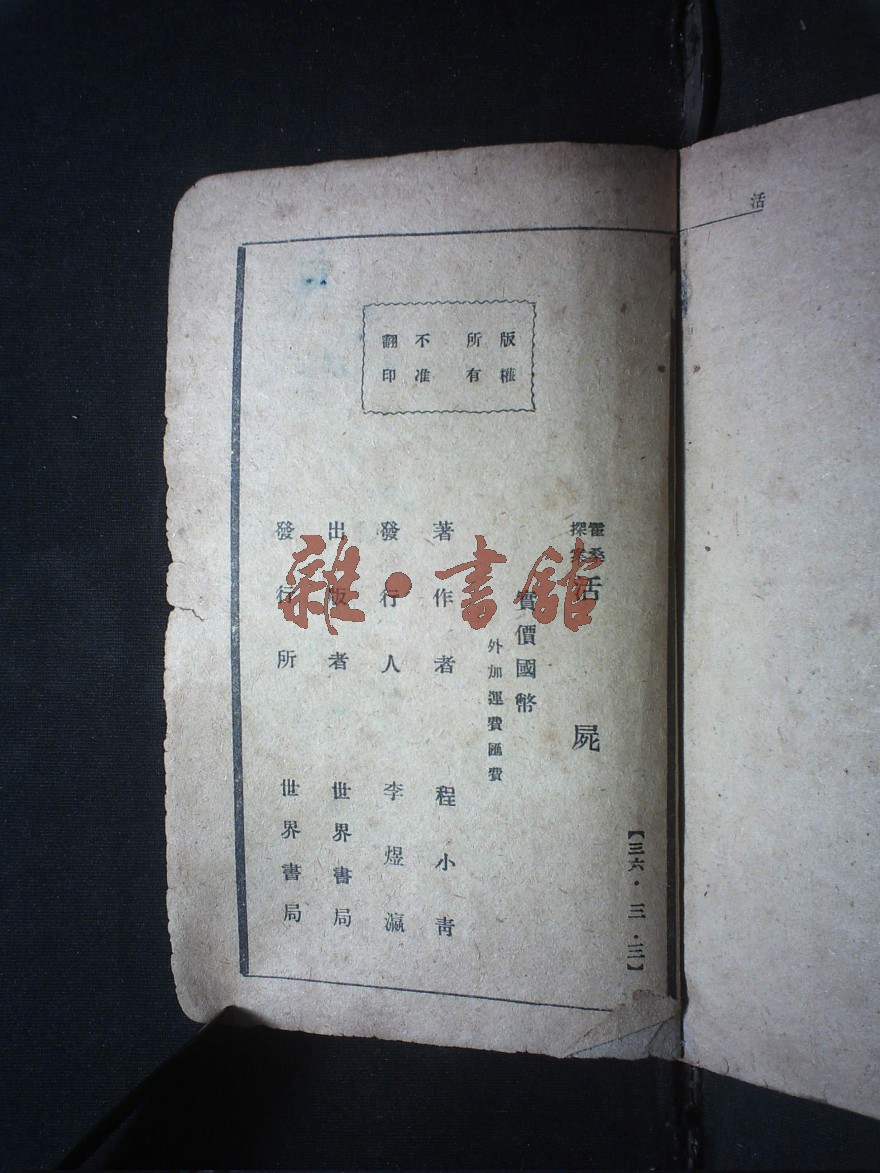 活
版權
所有
不准
翻印
【三六·三·三】
霍桑
探案
活屍
實價國幣
外加運費匯費
著作者 程小青
發行人 李煜瀛
出版者 世界書局
發行所 世界書局
雜·書館